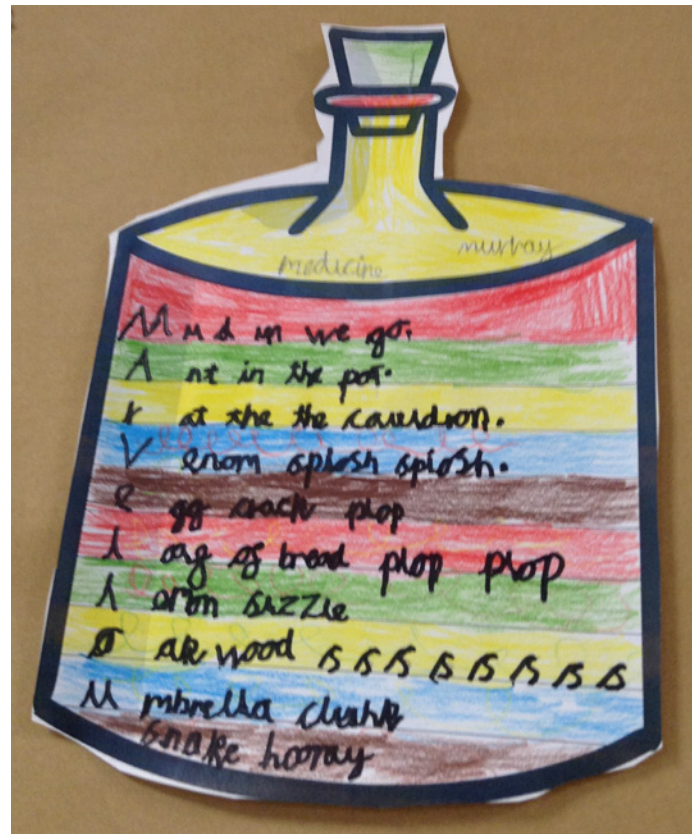 medicine murray
Mud in we go.
Ant in the pot.
rat the the cauldron.
Venom splosh splosh.
egg crack plop
log of bread plop plop
lemon sizzle
oak wood s s s s s s s s
Umbrella clunk
snake hooray